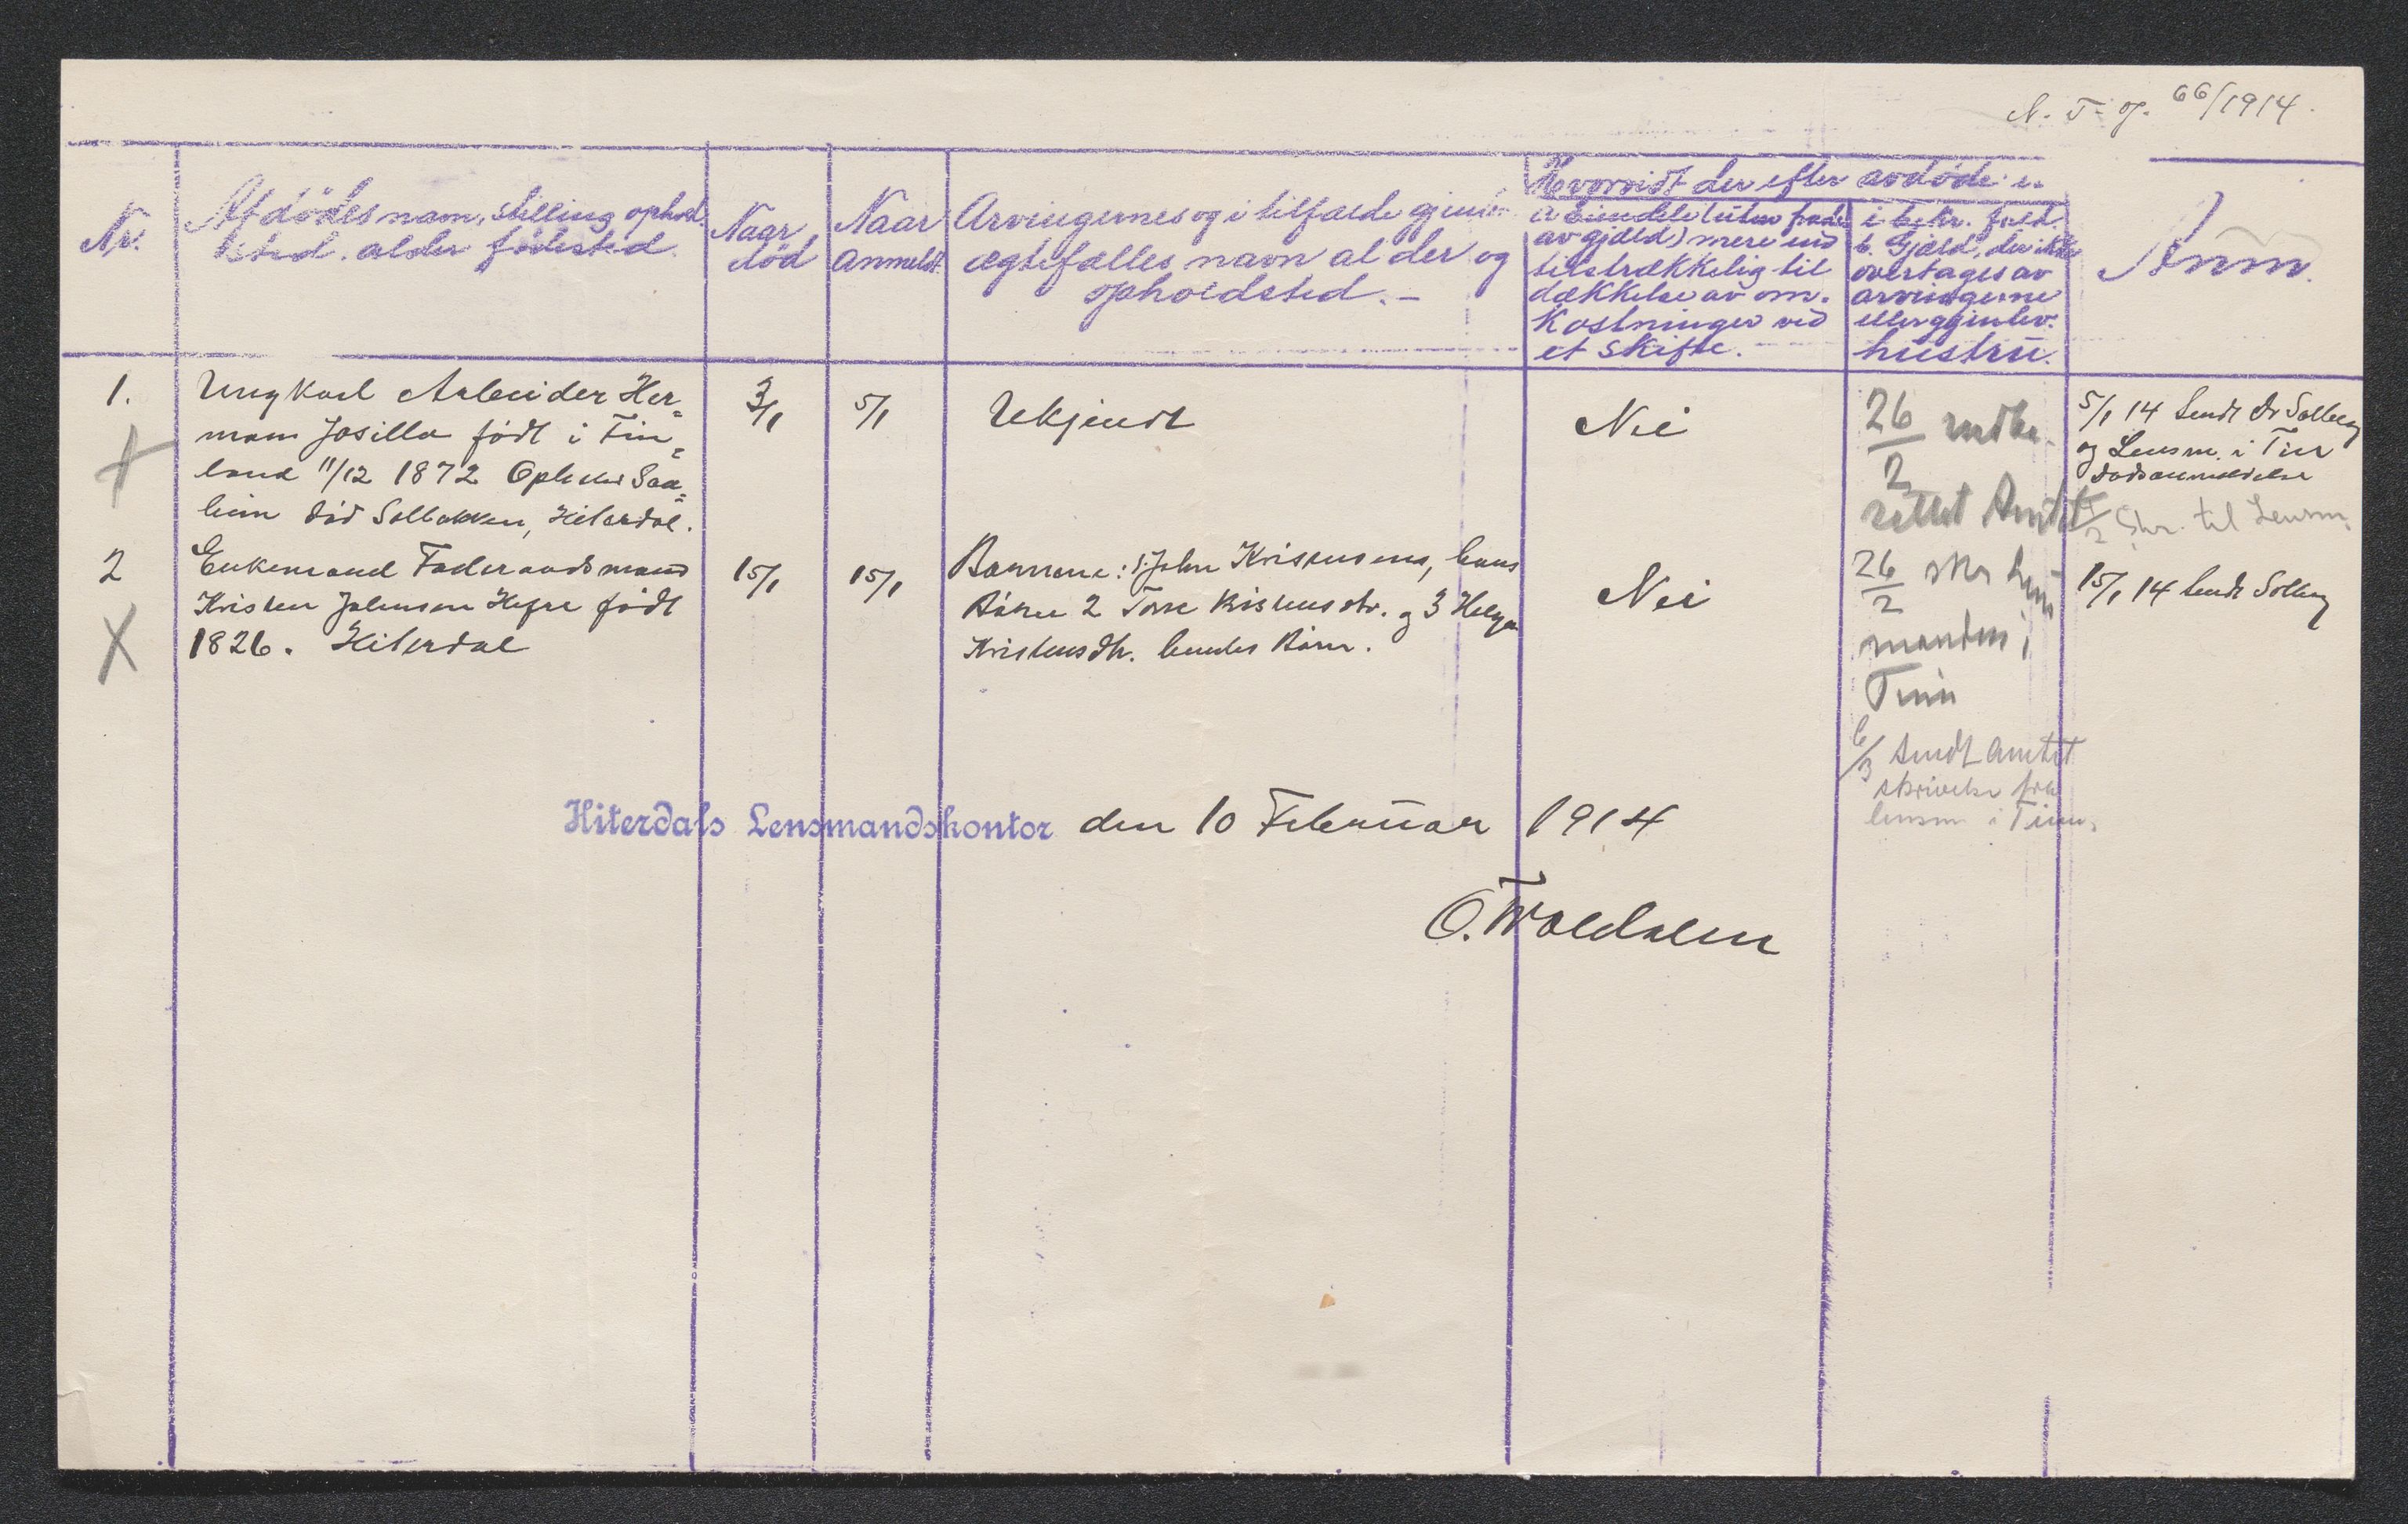 N. T. og. 66/1914.
Nr.
Afdödes navn, stilling ophold
sted. alder födested.
Naar
död
Naar
anmeldt.
Arvingernes og i tilfælde gjenlev.
ægtefælles navn alder og
opholdsted. -
Hvorvidt der efter avdöde er
a. Eiendele (uten fradr
av gjæld) mere end
tilstrækkelig til
dækkelse av om.
kostninger ved
et skifte.
i bekr. fald.
b. Gjæld, der ikke
overtages av
arvingerne
eller gjenlev.
hustru.
Anm.
1.
Ungkarl Arbeider Her=
man Josilla födt i Fin=
land 11/12 1872 Opholds Saa=
heim död Solbakken, Hiterdal.
3/1
5/1
Ukjendt
Nei
26/2 indbe-
rettet Amtet
5/1 14 Sendt Dr Solberg
og Lensm. i Tinn
dödsanmeldelse
Skr. til Lensm.
2
Enkemand Föderaadsmand
Kristen Johnsen Hefre födt
1826. Hiterdal
15/1
15/1
Barnene: 1. John Kristensens, hans
Börn 2 Tone Kristensdtr. og 3 Helga
Kristensdtr. hendes Börn.
Nei
26/2 skr Lens
manden i
Tinn
6/3 Sendt Amtet
skrivelse fra
lensm i Tinn.
15/1 14 Sendt Solberg
Hiterdals Lensmandskontor den 10 Februar 1914